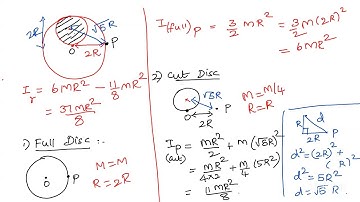 2R
√5R
O
P
2R
I_r = 6MR² - 11MR²/8
= 37MR²/8
1) Full Disc :-
M = M
R = 2R
O
P
I(full)_P = 3/2 MR² = 3/2 M(2R)²
= 6MR²
2) Cut Disc
√5R
O
P
2R
M = M/4
R = R
I_P (cut) = MR²/2 + M(√5R)²
= MR²/4×2 + M/4 (5R²)
= 11MR²/8
R
d
2R
P
d² = (2R)² + (R)²
d² = 5R²
d = √5 R